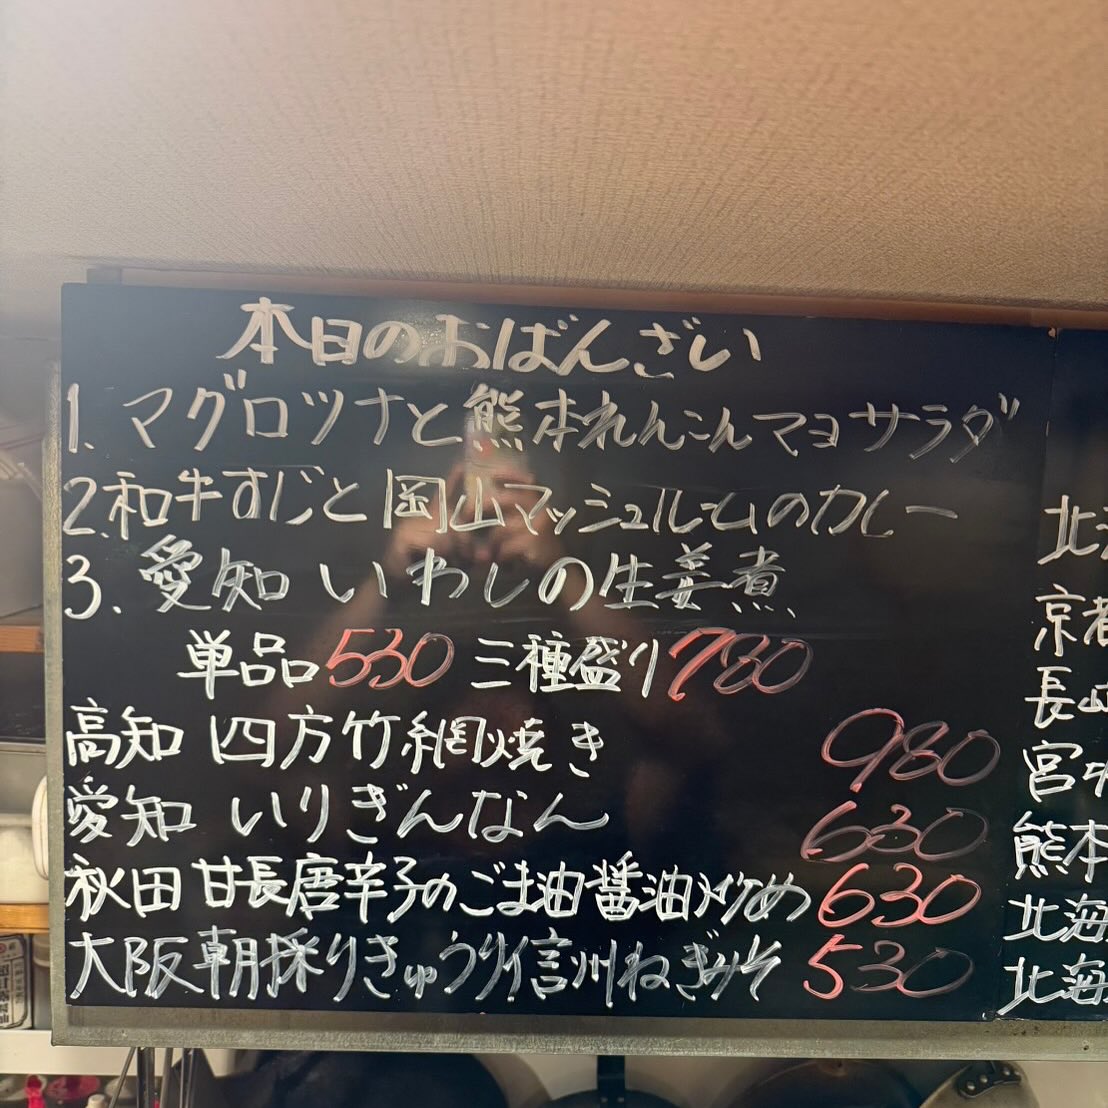 本日のおばんざい
1. マグロツナと熊本れんこんマヨサラダ
2. 和牛すじと岡山マッシュルームのカレー
3. 愛知 いわしの生姜煮
単品530 三種盛り780
高知 四方竹網焼き 980
愛知 いりぎんなん 630
秋田 甘長唐辛子のごま油醤油炒め 630
大阪 朝採りきゅうり信州ねぎみそ 530
北海
京都
長崎
宮
熊本
北海
北海